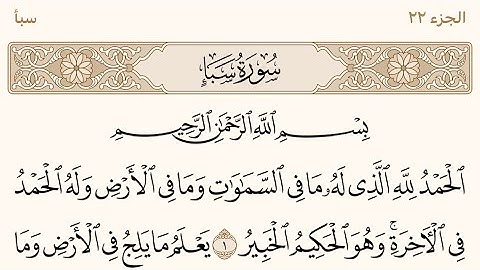 الجزء ٢٢
سبأ
سُورَةُ سَبَإٍ
بِسْمِ ٱللَّهِ ٱلرَّحْمَٰنِ ٱلرَّحِيمِ
ٱلْحَمْدُ لِلَّهِ ٱلَّذِى لَهُۥ مَا فِى ٱلسَّمَٰوَٰتِ وَمَا فِى ٱلْأَرْضِ وَلَهُ ٱلْحَمْدُ
فِى ٱلْءَاخِرَةِ ۚ وَهُوَ ٱلْحَكِيمُ ٱلْخَبِيرُ ١ يَعْلَمُ مَا يَلِجُ فِى ٱلْأَرْضِ وَمَا